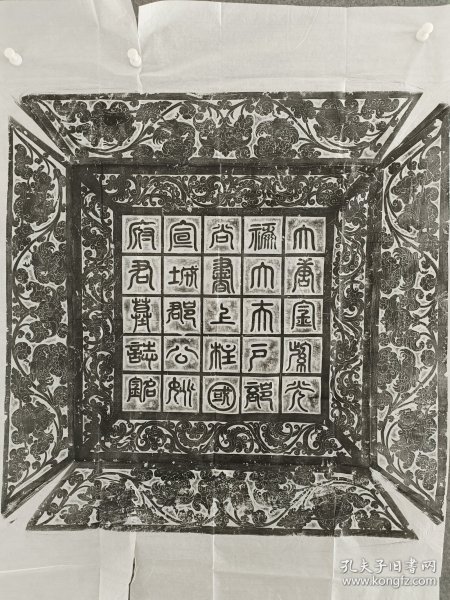 大唐金紫光
祿大夫戶部
尚書上柱國
宣城郡公姚
府君墓誌銘
孔夫子旧书网
www.kongfz.com